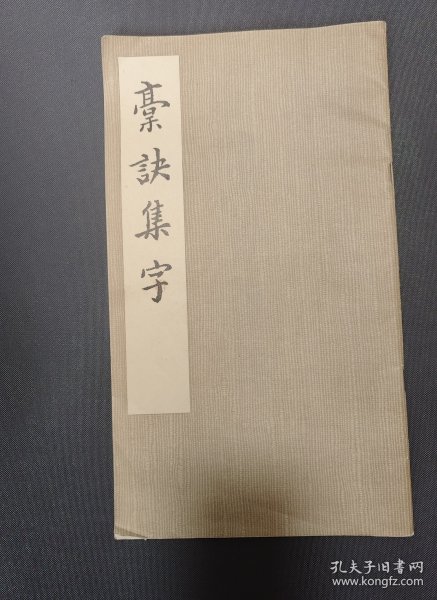 稾訣集字
孔夫子旧书网
www.kongfz.com